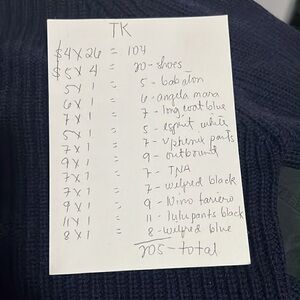 TK
$4 x 26 = 104
$5 x 4 = 20 - shoes
5 x 1 = 5 - babaton
6 x 1 = 6 - angela mara
7 x 1 = 7 - long coat blue
5 x 1 = 5 - esprit white
7 x 1 = 7 - vphenix pants
9 x 1 = 9 - outbound
7 x 1 = 7 - TNA
7 x 1 = 7 - welfred black
9 x 1 = 9 - Nino
11 x 1 = 11 - lulu pants black
8 x 1 = 8 - welfred blue
205 - total